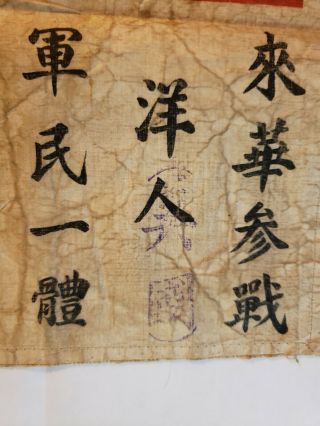 來華参戰
洋人
軍民一體